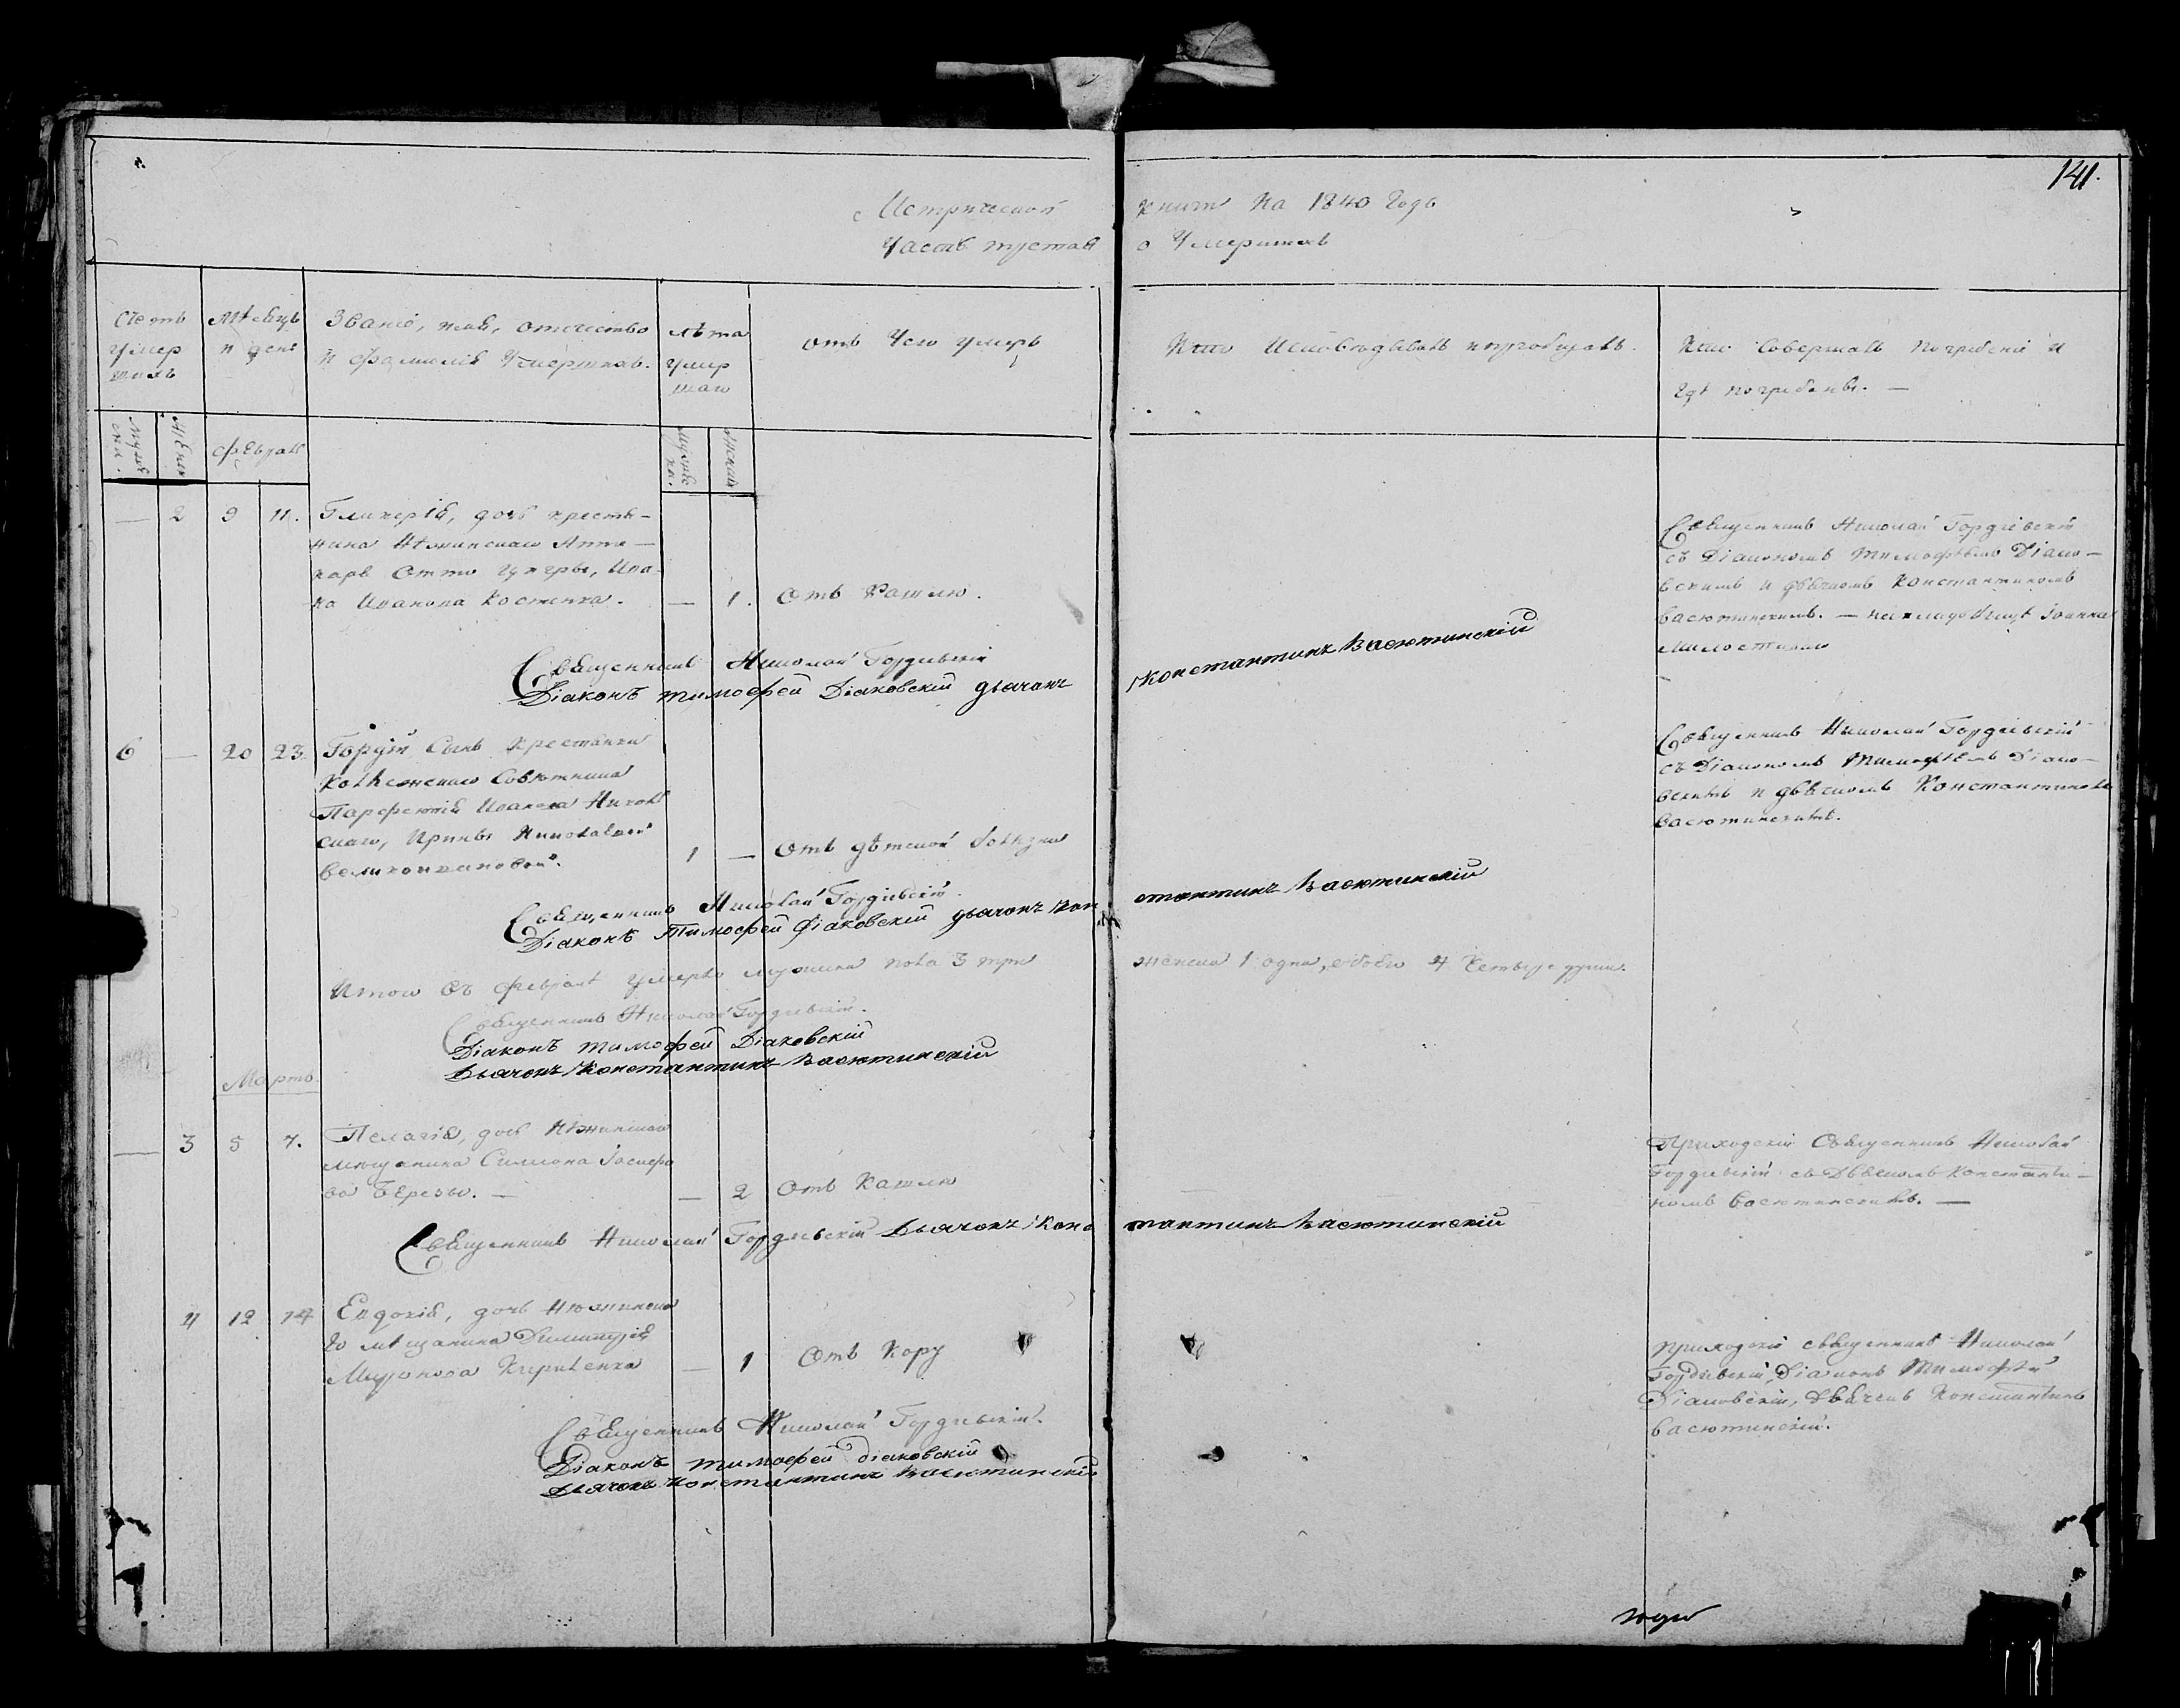 141.
Метрической книги на 1840 Годъ
Часть третая о Умершихъ
Счетъ умер шихъ
Мѣсяцъ и день
Званіе, имя, отчество и фамилія Умершихъ.
Лѣта умер шаго
отъ Чего умеръ
Кто Исповѣдывалъ и пріобщалъ.
Кто Совершалъ погребеніе и гдѣ погребены. —
Мужеска. Женска
Февраль
Мужеска. Женска
— 2 9 11. Гликерія, дочь крестья-
нина Нѣжинскаго Апте-
каря Отто Цигры, Ива-
на Иванова Костенка. — 1. Отъ Кашлю.
Священникъ Николай Гордіевскій
съ Діакономъ Тимофѣемъ Діако-
вскимъ и дьячкомъ Константиномъ
Васютинскимъ. — на кладбищѣ Іоанна
Милостиваго
Священникъ Николай Гордіевскій
Діаконъ Тимофей Діаковскій дьячокъ Константинъ Васютинскій
6 — 20 23. Гордій Сынъ Крестьянки
Коллежскаго Совѣтника
Парфентія Иванова
скаго, Ирины Николаевой
1 — Отъ дѣтской болѣзни
Священникъ Николай Гордіевскій
съ Діакономъ Тимофѣемъ Діако-
вскимъ и дьячкомъ Константиномъ
Васютинскимъ.
Священникъ Николай Гордіевскій.
Діаконъ Тимофей Діаковскій дьячокъ Константинъ Васютинскій
Итого Въ февралѣ умерло мужеска пола 3 три женска 1 одна, обоего 4 Четыре души.
Священникъ Николай Гордіевскій.
Діаконъ Тимофей Діаковскій
Дьячокъ Константинъ Васютинскій
Мартъ
— 3 5 7. Пелагія, дочь Нѣжинскаго
мѣщанина Симиона Іосифо
ва Березы. — — 2 Отъ Кашлю
Приходскій Священникъ Николай
Гордіевскій съ Дьячкомъ Константи-
номъ Васютинскимъ. —
Священникъ Николай Гордіевскій Дьячокъ Константинъ Васютинскій
4 12 14 Евдокія, дочь Нѣжинска
го мѣщанина Димитрія
Миронова Кириленка — 1 Отъ Кору
приходскій священникъ Николай
Гордіевскій, Діаконъ Тимофѣй
Діаковскій, Дьячокъ Константинъ
Васютинскій.
Священникъ Николай Гордіевскій.
Діаконъ Тимофей Діаковскій
Дьячокъ Константинъ Васютинскій